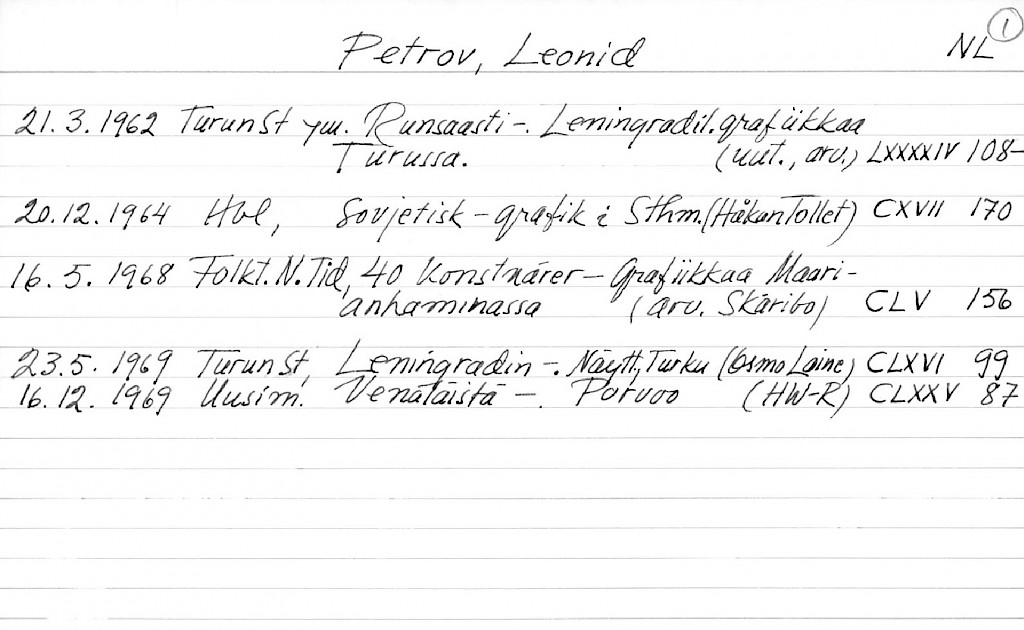 Petrov, Leonid NL 1
21.3.1962 TurunSt ym. Runsaasti -. Leningradil. grafiikkaa
Turussa. (uut., arv.) LXXXXIV 108-
20.12.1964 Hbl, Sovjetisk - grafik i Sthm. (Håkan Tollet) CXVII 170
16.5.1968 Folkt.N.Tid, 40 Konstnärer - Grafiikkaa Maari-
anhaminassa (arv. Skaribo) CLV 156
23.5.1969 TurunSt, Leningradin -. Näytt, Turku (Osmo Laine) CLXVI 99
16.12.1969 Uusim. Venäläistä -. Porvoo (HW-R) CLXXV 87